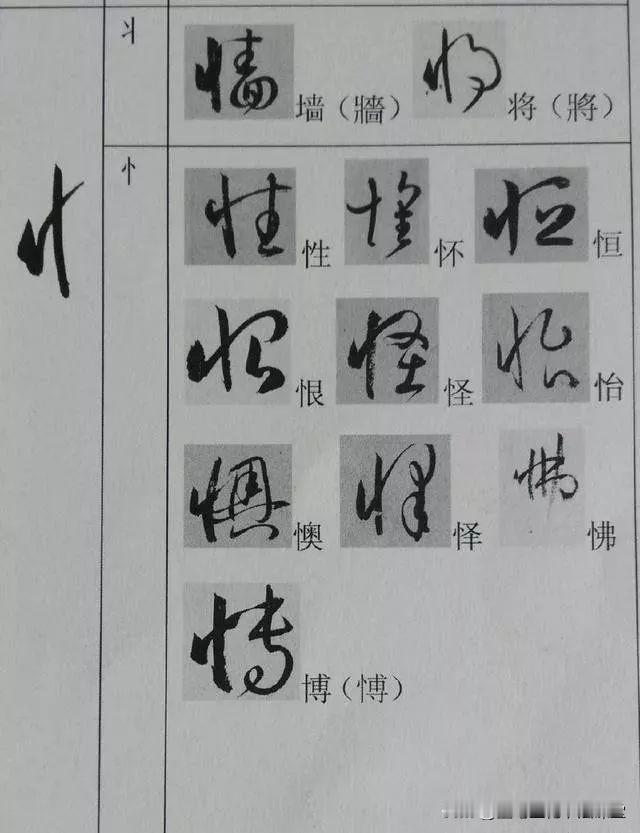 丬 墙（牆） 将（將）
忄 性 怀 恒
恨 怪 怡
懊 怿 怫
博（愽）